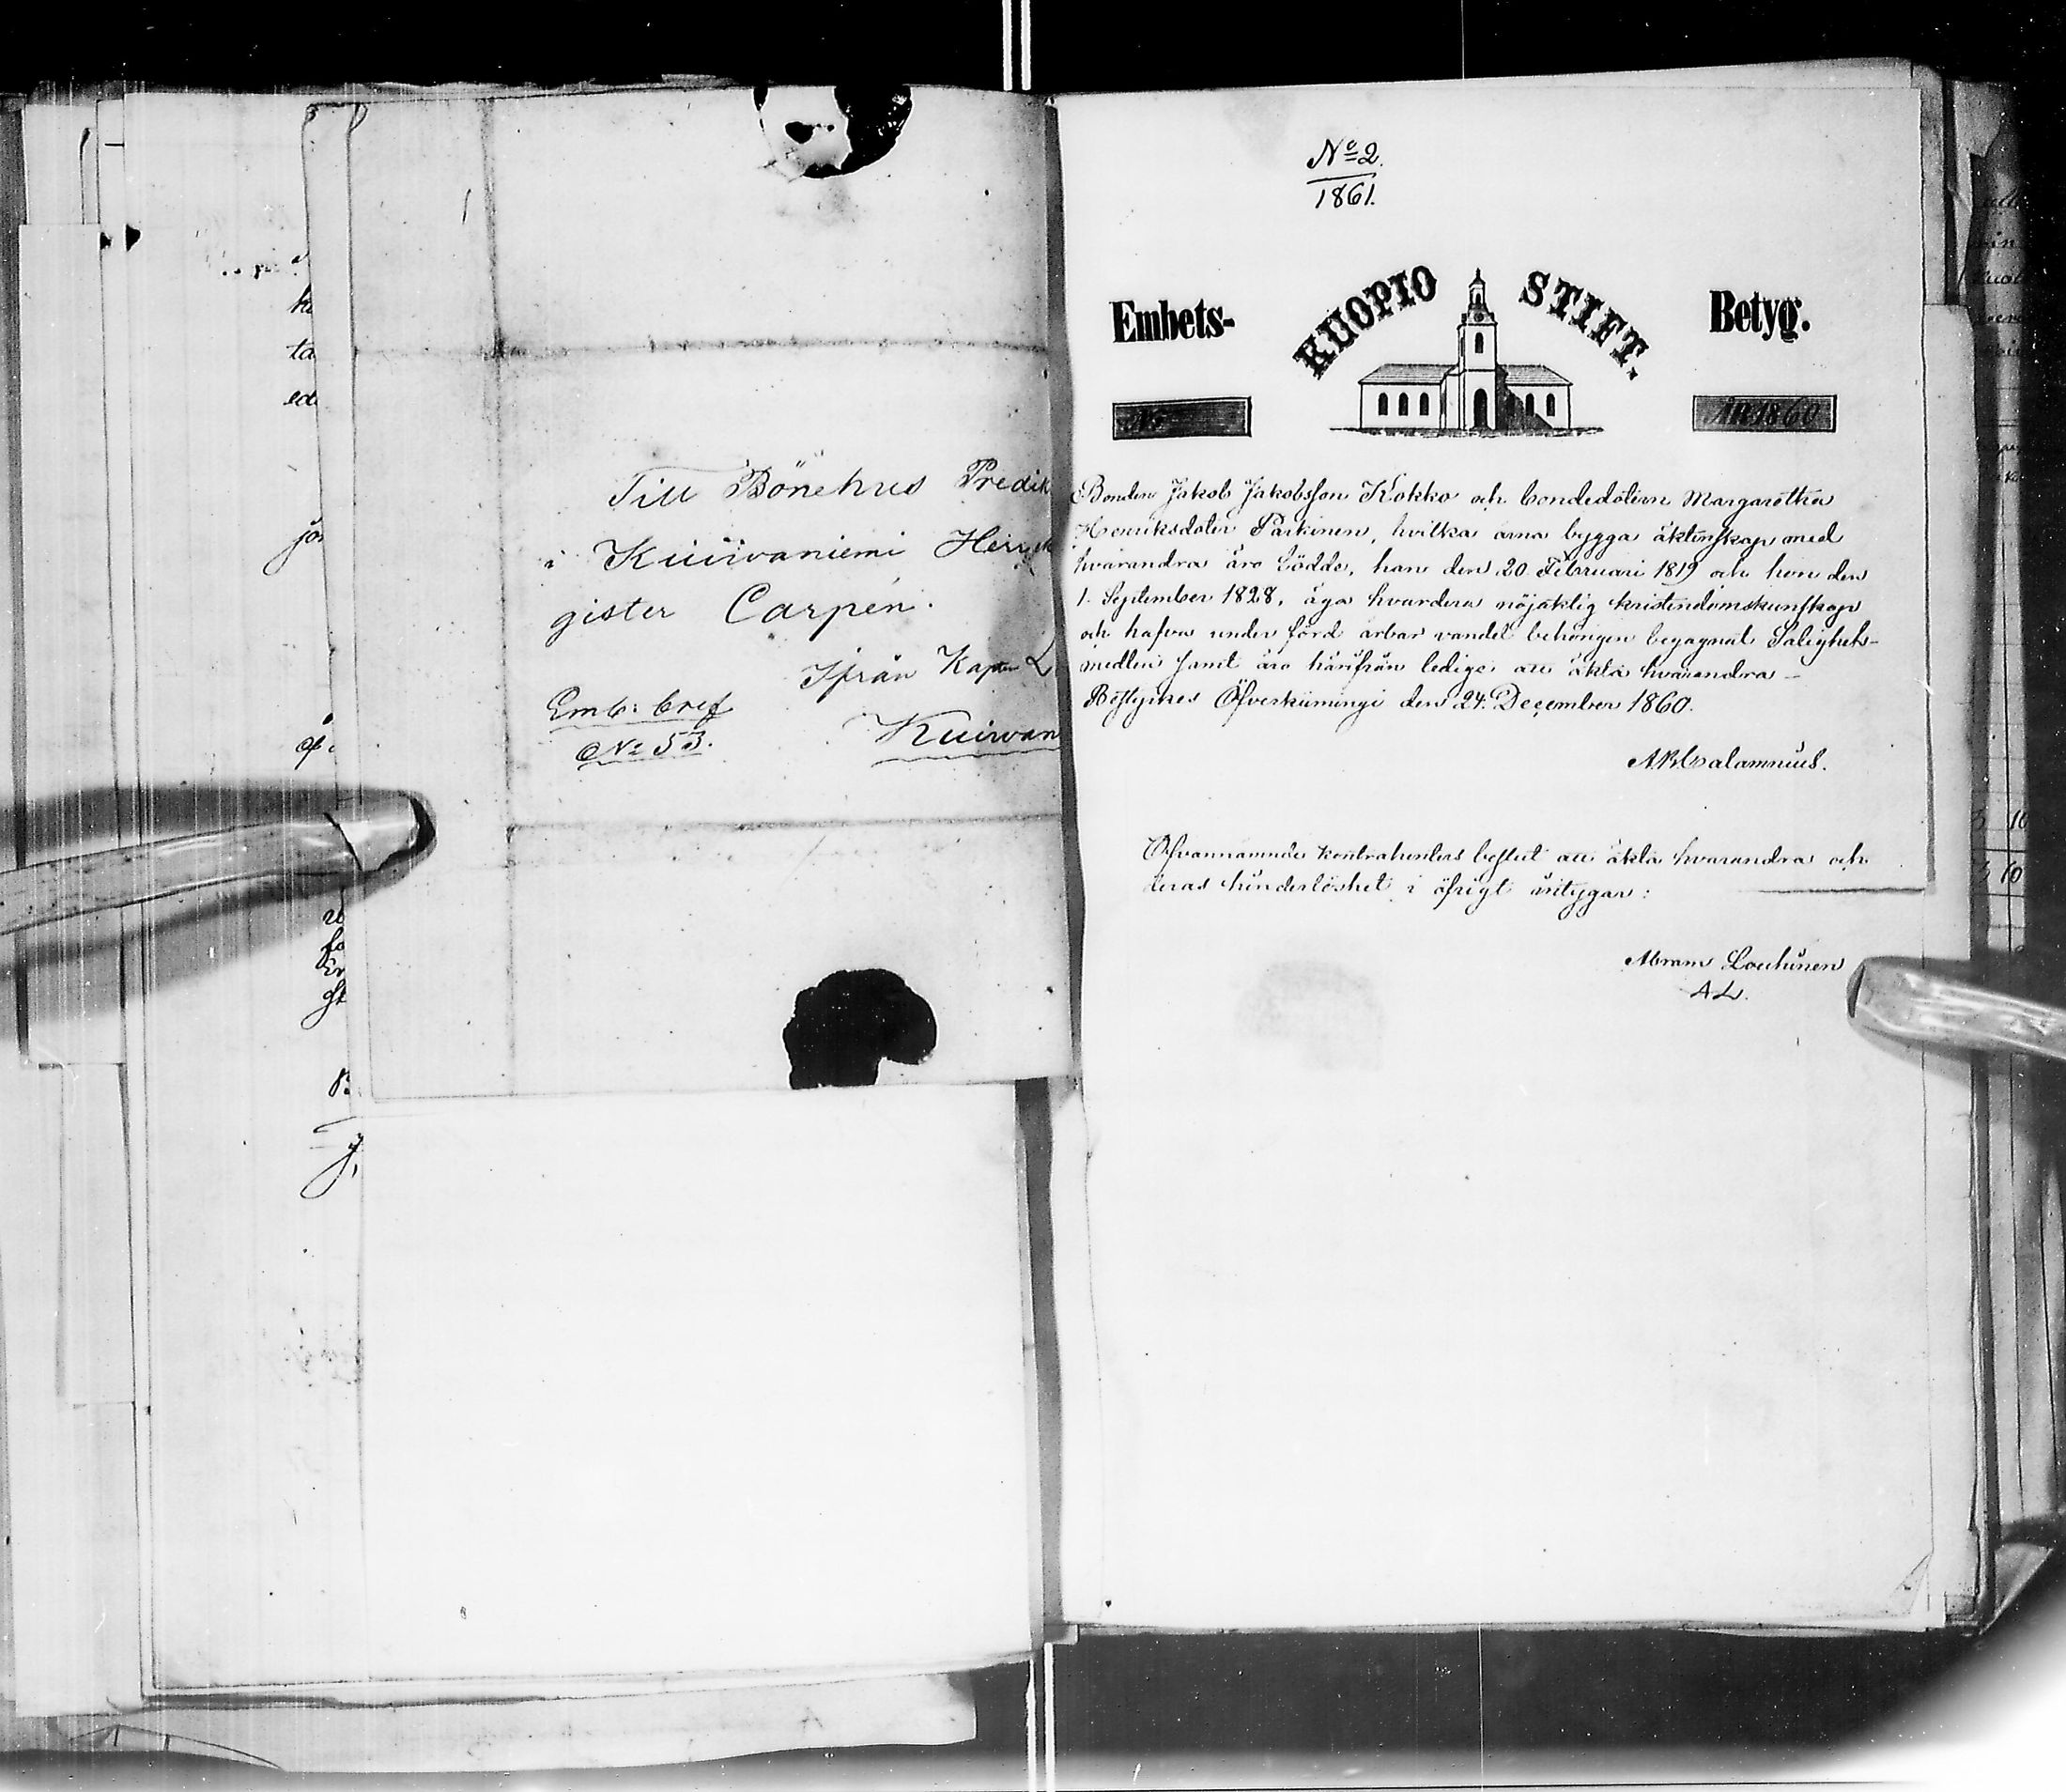 Till Bönehus Predik
i Kuiivaniemi Herr
gister Carpén.
Ifrån Kap
Emb: bref
No 53.
Kuivan
No 2.
1861.
Embets-
KUOPIO STIFT.
Betyg.
No
ÅR 1860
Bonden Jakob Jakobsson Kokko och bondedottern Margaretha
Henriksdotter Parkinen, hvilka ärna bygga äktenskap med
hvarandra äro födde, han den 20. Februari 1819 och hon den
1. September 1828, äga hvardera nöjaktig kristendomskunskap
och hafva under förd ärbar vandel behörigen begagnat Salighets-
medlen samt äro härifrån lediga att äkta hvarandra –
Betygas Öfverkiimingi den 24. December 1860.
A R Calamnius.
Ofvannämnde kontrahenters beslut att äkta hvarandra och
deras hinderlöshet i öfrigt intygar:
Abram Louhinen
A L.